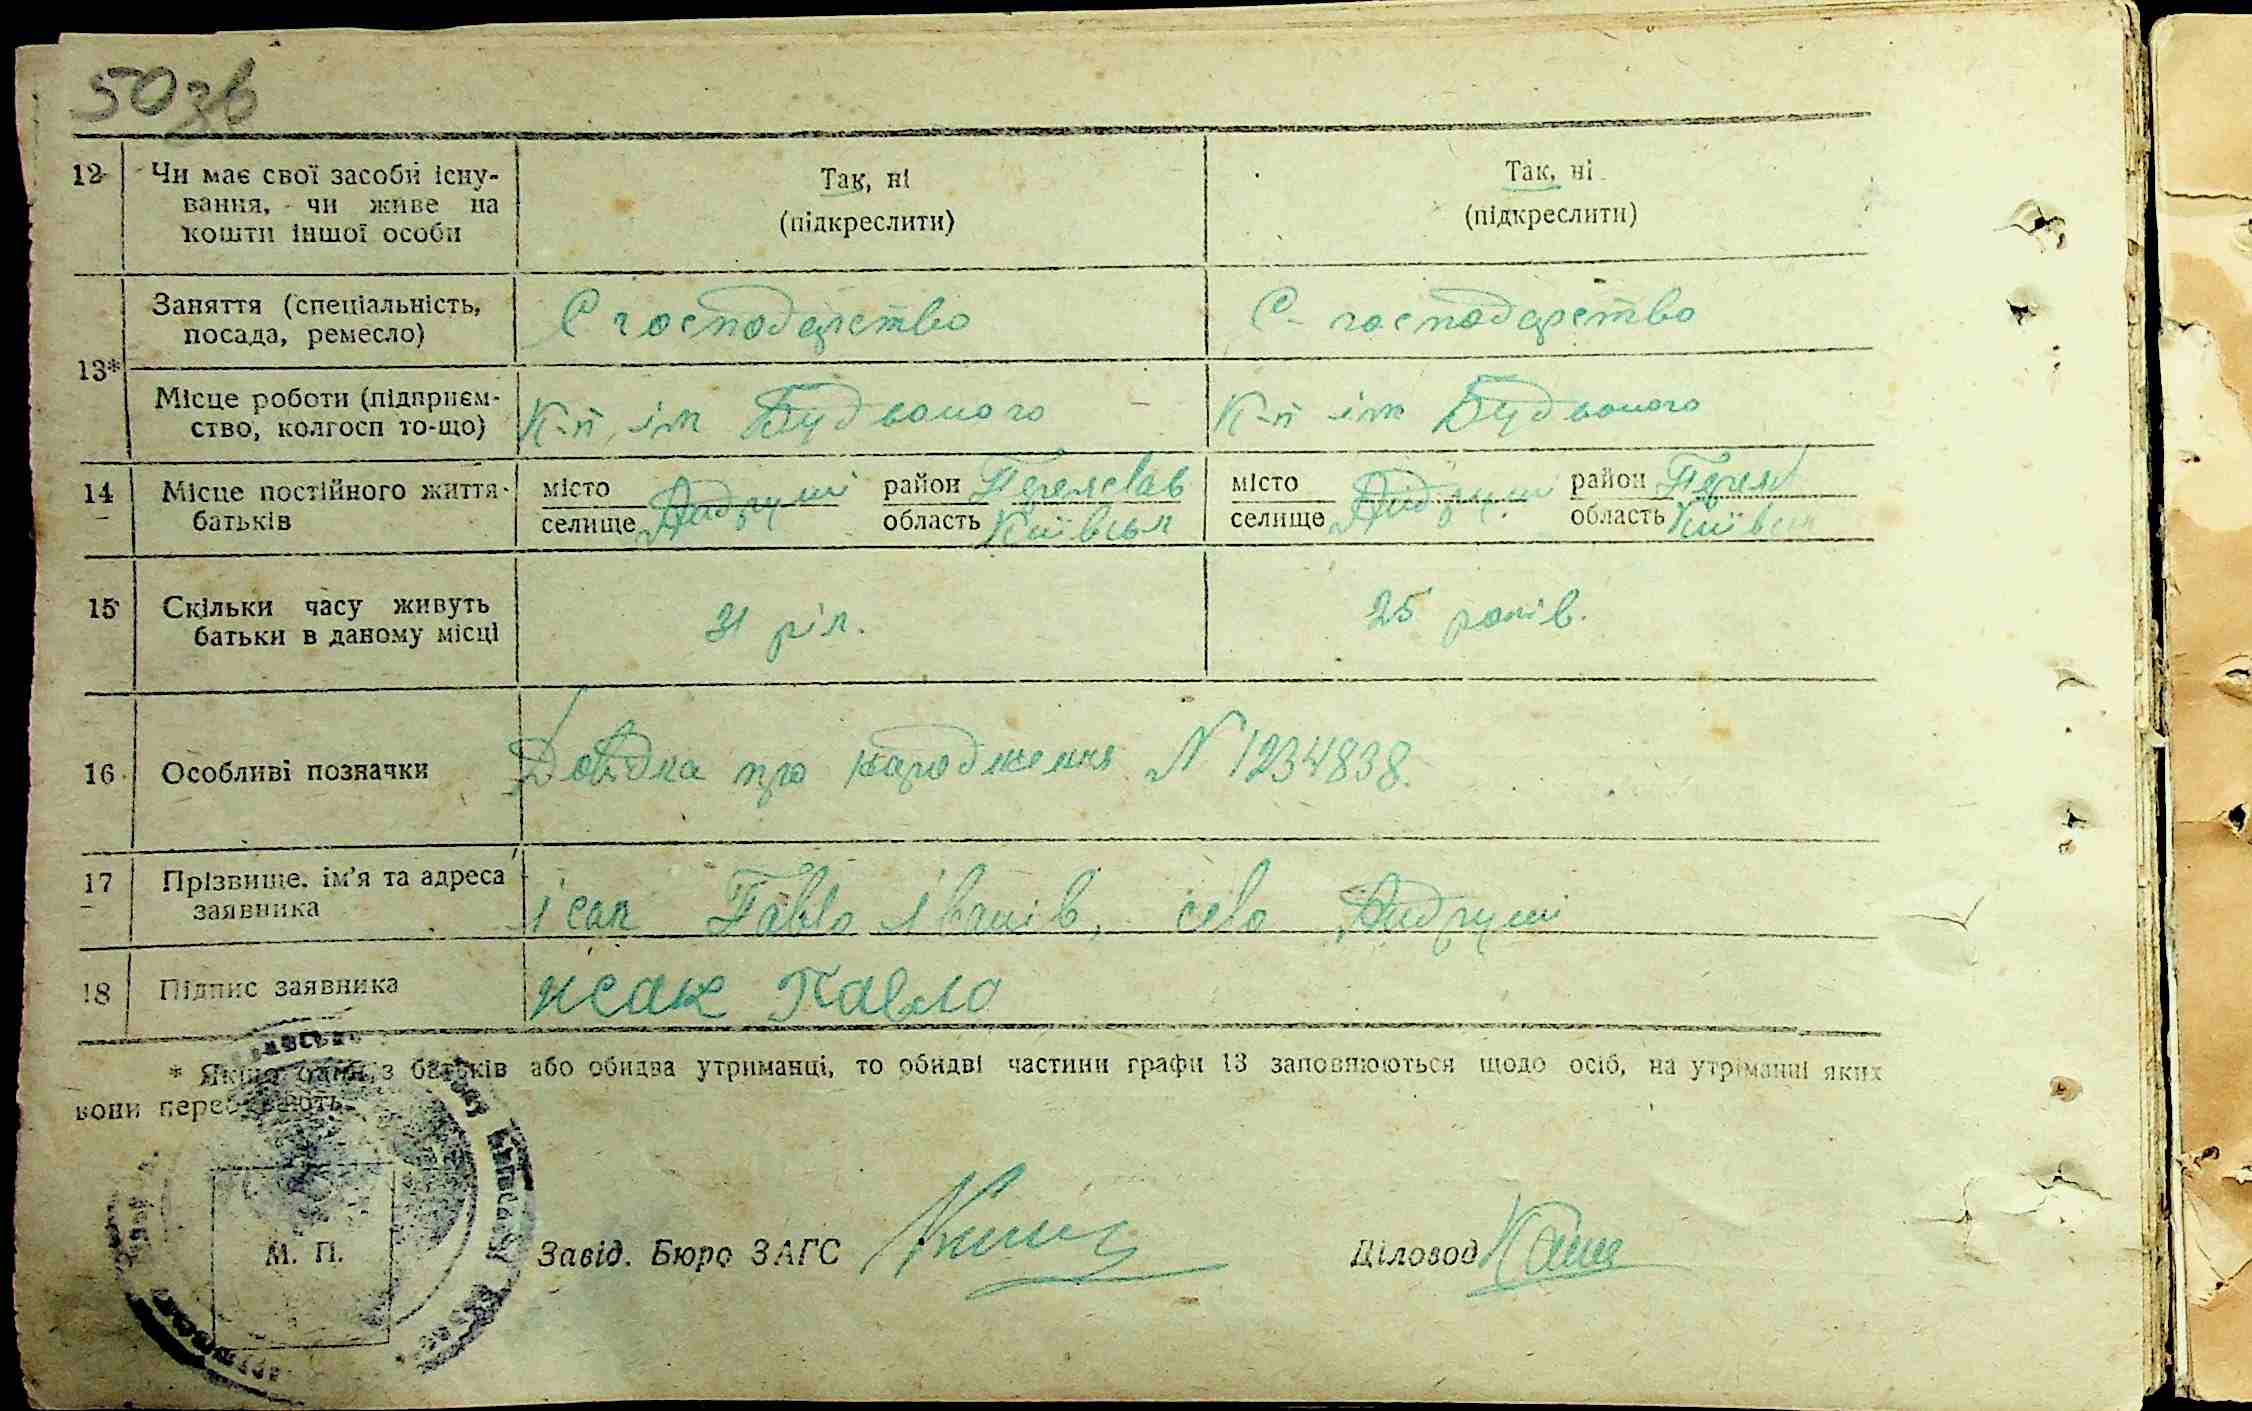 50зв
12 Чи має свої засоби існу-
вання, чи живе на
кошти іншої особи
Так, ні
(підкреслити)
Так, ні
(підкреслити)
13*
Заняття (спеціальність,
посада, ремесло)
С господарство
С-господарство
Місце роботи (підприєм-
ство, колгосп то-що)
К-п ім Будьоного
К-п ім Будьоного
14 Місце постійного життя
батьків
місто
селище Андруші
район Переяслав
область Київськ
місто
селище Андруші
район Переясл
область Київськ
15 Скільки часу живуть
батьки в даному місці
31 рік.
25 років.
16 Особливі позначки
Довідка про народження № 1234838.
17 Прізвище, ім'я та адреса
заявника
ісак Павло Іванів, село Андруші
18 Підпис заявника
исак Павло
* Якщо один з батьків або обидва утриманці, то обидві частини графи 13 заповнюються щодо осіб, на утриманні яких
вони перебувають.
М. П.
Завід. Бюро ЗАГС
Діловод